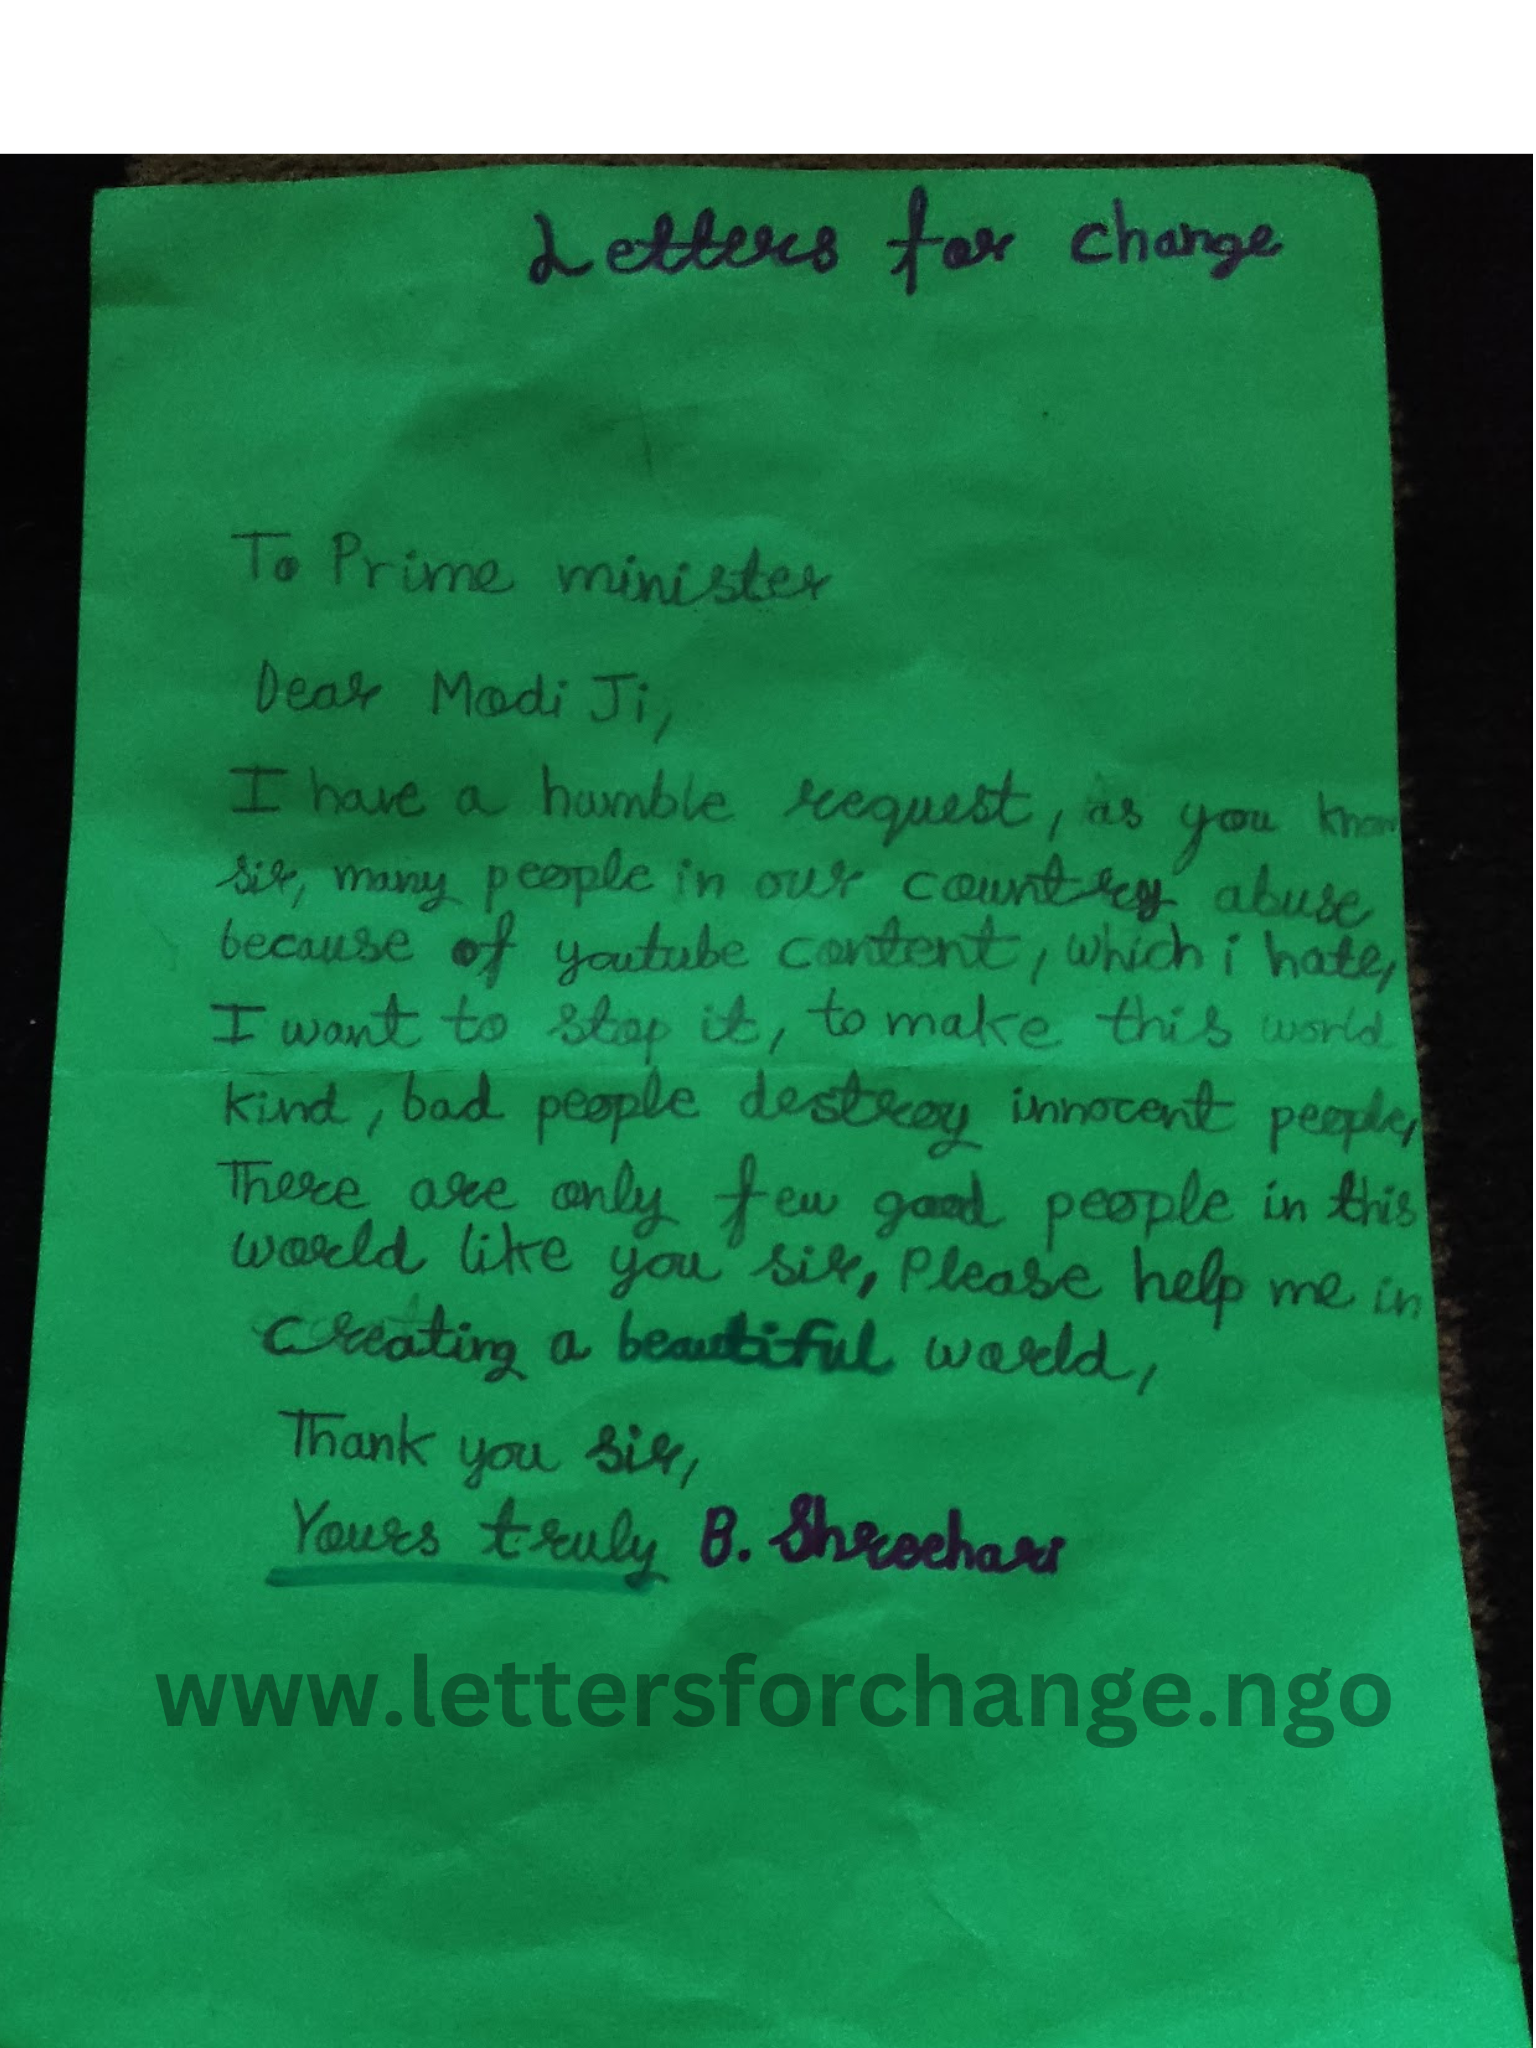 Letters for change
To Prime minister
Dear Modi Ji,
I have a humble request, as you know
sir, many people in our country abuse
because of youtube content, which i hate,
I want to stop it, to make this world
kind, bad people destroy innocent people,
There are only few good people in this
world like you sir, Please help me in
creating a beautiful world,
Thank you sir,
Yours truly B. Shreehari
www.lettersforchange.ngo